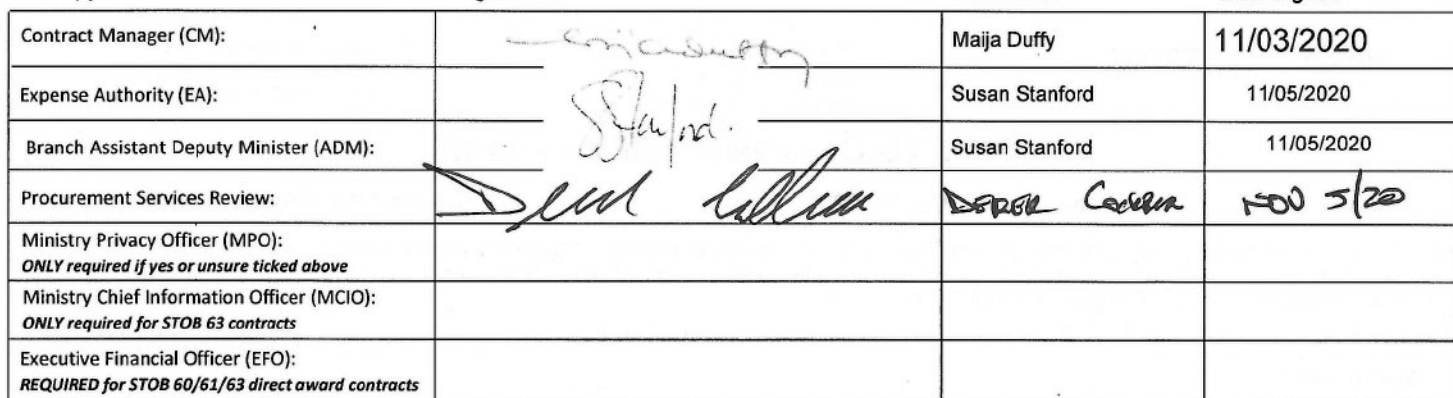 Contract Manager (CM): Maija Duffy 11/03/2020
Expense Authority (EA): SStanford. Susan Stanford 11/05/2020
Branch Assistant Deputy Minister (ADM): Susan Stanford 11/05/2020
Procurement Services Review: DEREK NOV 5/20
Ministry Privacy Officer (MPO):
ONLY required if yes or unsure ticked above
Ministry Chief Information Officer (MCIO):
ONLY required for STOB 63 contracts
Executive Financial Officer (EFO):
REQUIRED for STOB 60/61/63 direct award contracts